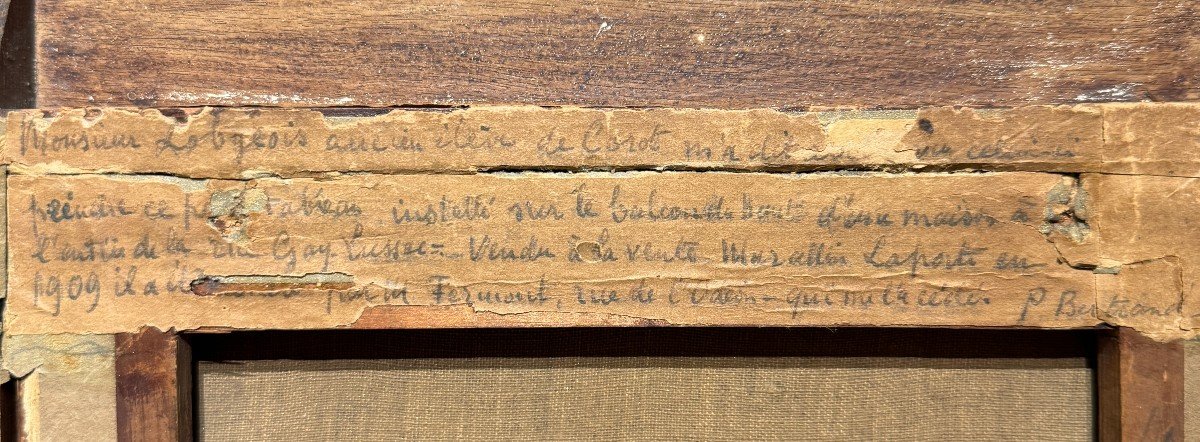 Monsieur Lobgeois ancien élève de Corot m'a dit
peindre ce petit tableau installé sur le balcon du haut d'une maison à
l'entrée de la rue Gay Lussac - Vendu à la vente Marallin Laporte en
1909 il a été par M Fermont, rue de l'Odéon - qui me l'a cédé. P Bertrand